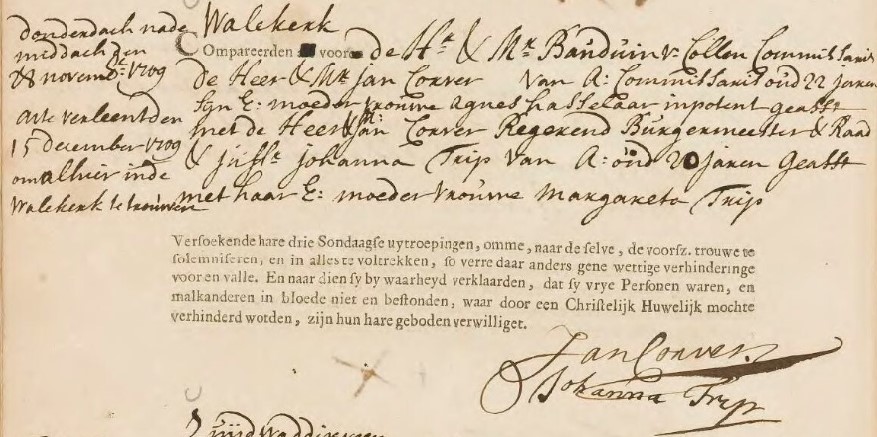 Walekerk
donderdach nade
middach den
28 novemb: 1709
Acte verleent den
15 december 1709
om alhier inde
Walekerk te trouwen
Compareerden voor de Hr. & Mr. Bauduin v: Collen Commissaris
de Heer & Mr. Jan Corver van A: Commissaris oud 22 Jaren
syn E: moeder vrouwe Agnes hasselaar inpotent geasst
met de Heer Jan Corver Regerend Burgermeester & Raad
& Juffr. Johanna Trip van A: oud 20 Jaren Geasst
met haar E: moeder vrouwe Margareta Trip
Versoekende hare drie Sondaagse uytroepingen, omme, naar de selve, de voorsz. trouwe te
solemniseren, en in alles te voltrekken, so verre daar anders gene wettige verhinderinge
voor en valle. En naar dien sy by waarheyd verklaarden, dat sy vrye Personen waren, en
malkanderen in bloede niet en bestonden, waar door een Christelijk Huwelijk mochte
verhinderd worden, zijn hun hare geboden verwilliget.
Jan Corver.
Johanna Trip